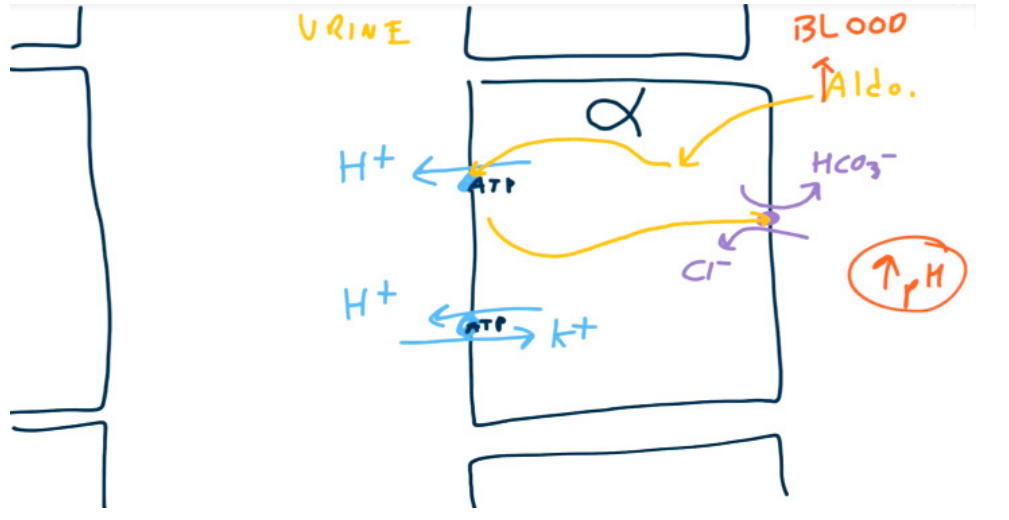 URINE
BLOOD
↑Aldo.
α
H+
ATP
HCO3-
Cl-
↑pH
H+
ATP
K+